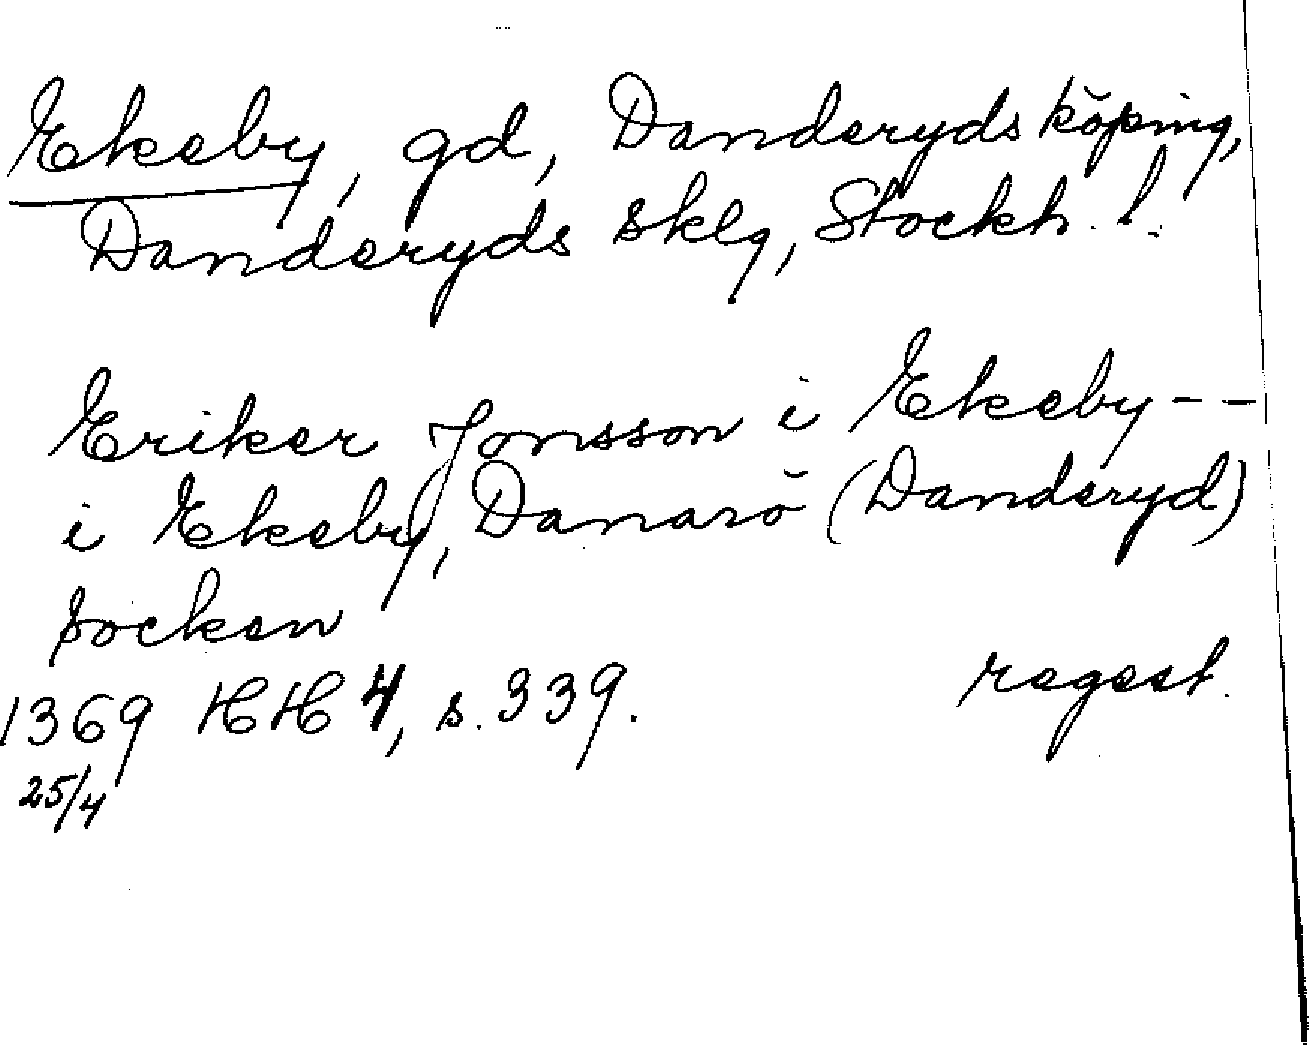 Ekeby, gd, Danderyds köping,
Danderyds sklg, Stockh. l.
Eriker Jonsson i Ekeby --
i Ekeby, Danarö (Danderyd)
socken
1369 HH 4, s. 339. regest.
25/4